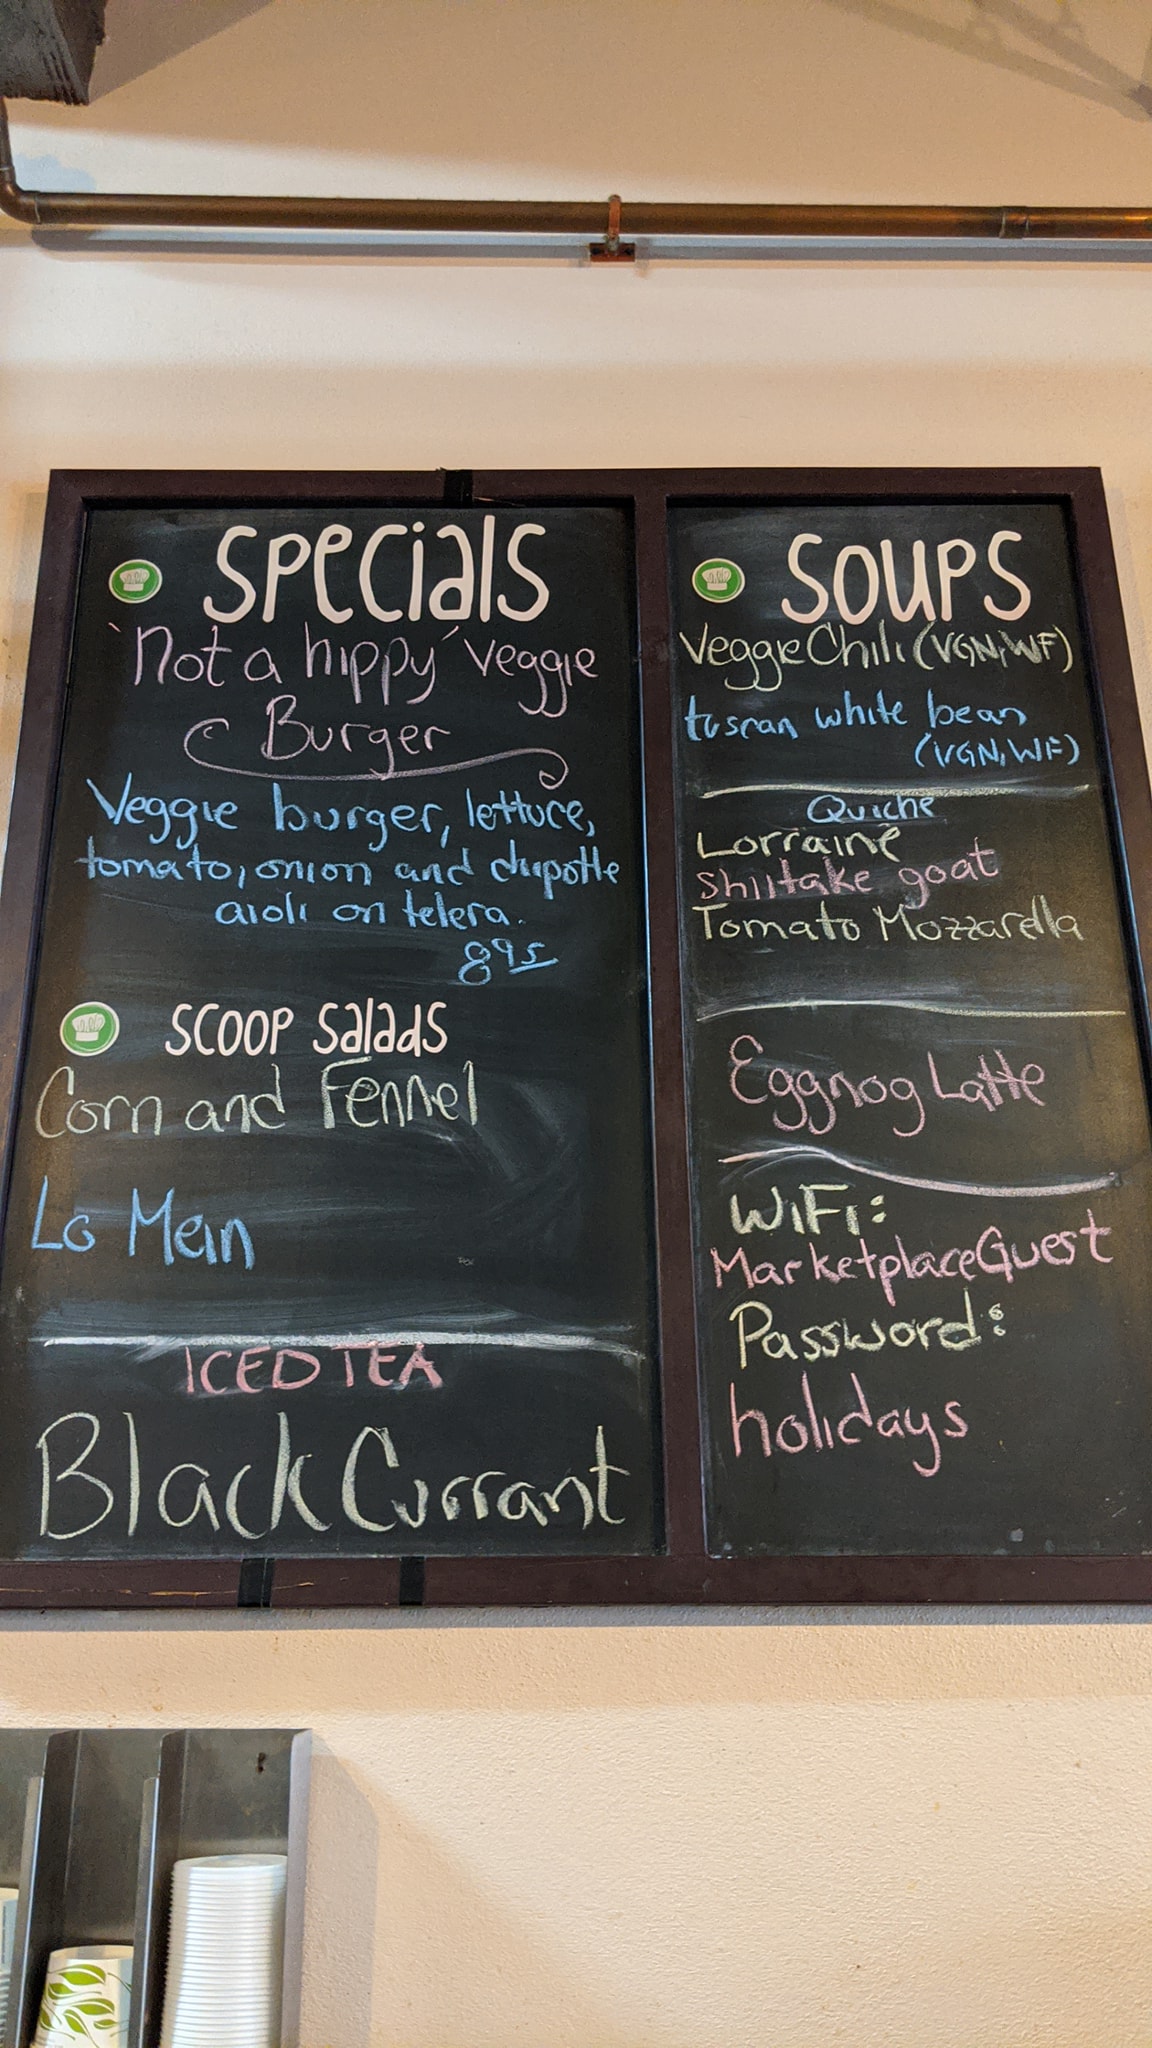 SPecials
'Not a hippy' Veggie
Burger
Veggie burger, lettuce,
tomato, onion and chipotle
aioli on telera.
8.95
SCOOP Salads
Corn and Fennel
Lo Mein
ICED TEA
Black Currant
SOUPS
Veggie Chili (VGN, WF)
tuscan white bean
(VGN, WF)
Quiche
Lorraine
Shiitake goat
Tomato Mozzarella
Eggnog Latte
WiFi:
MarketplaceGuest
Password:
holidays